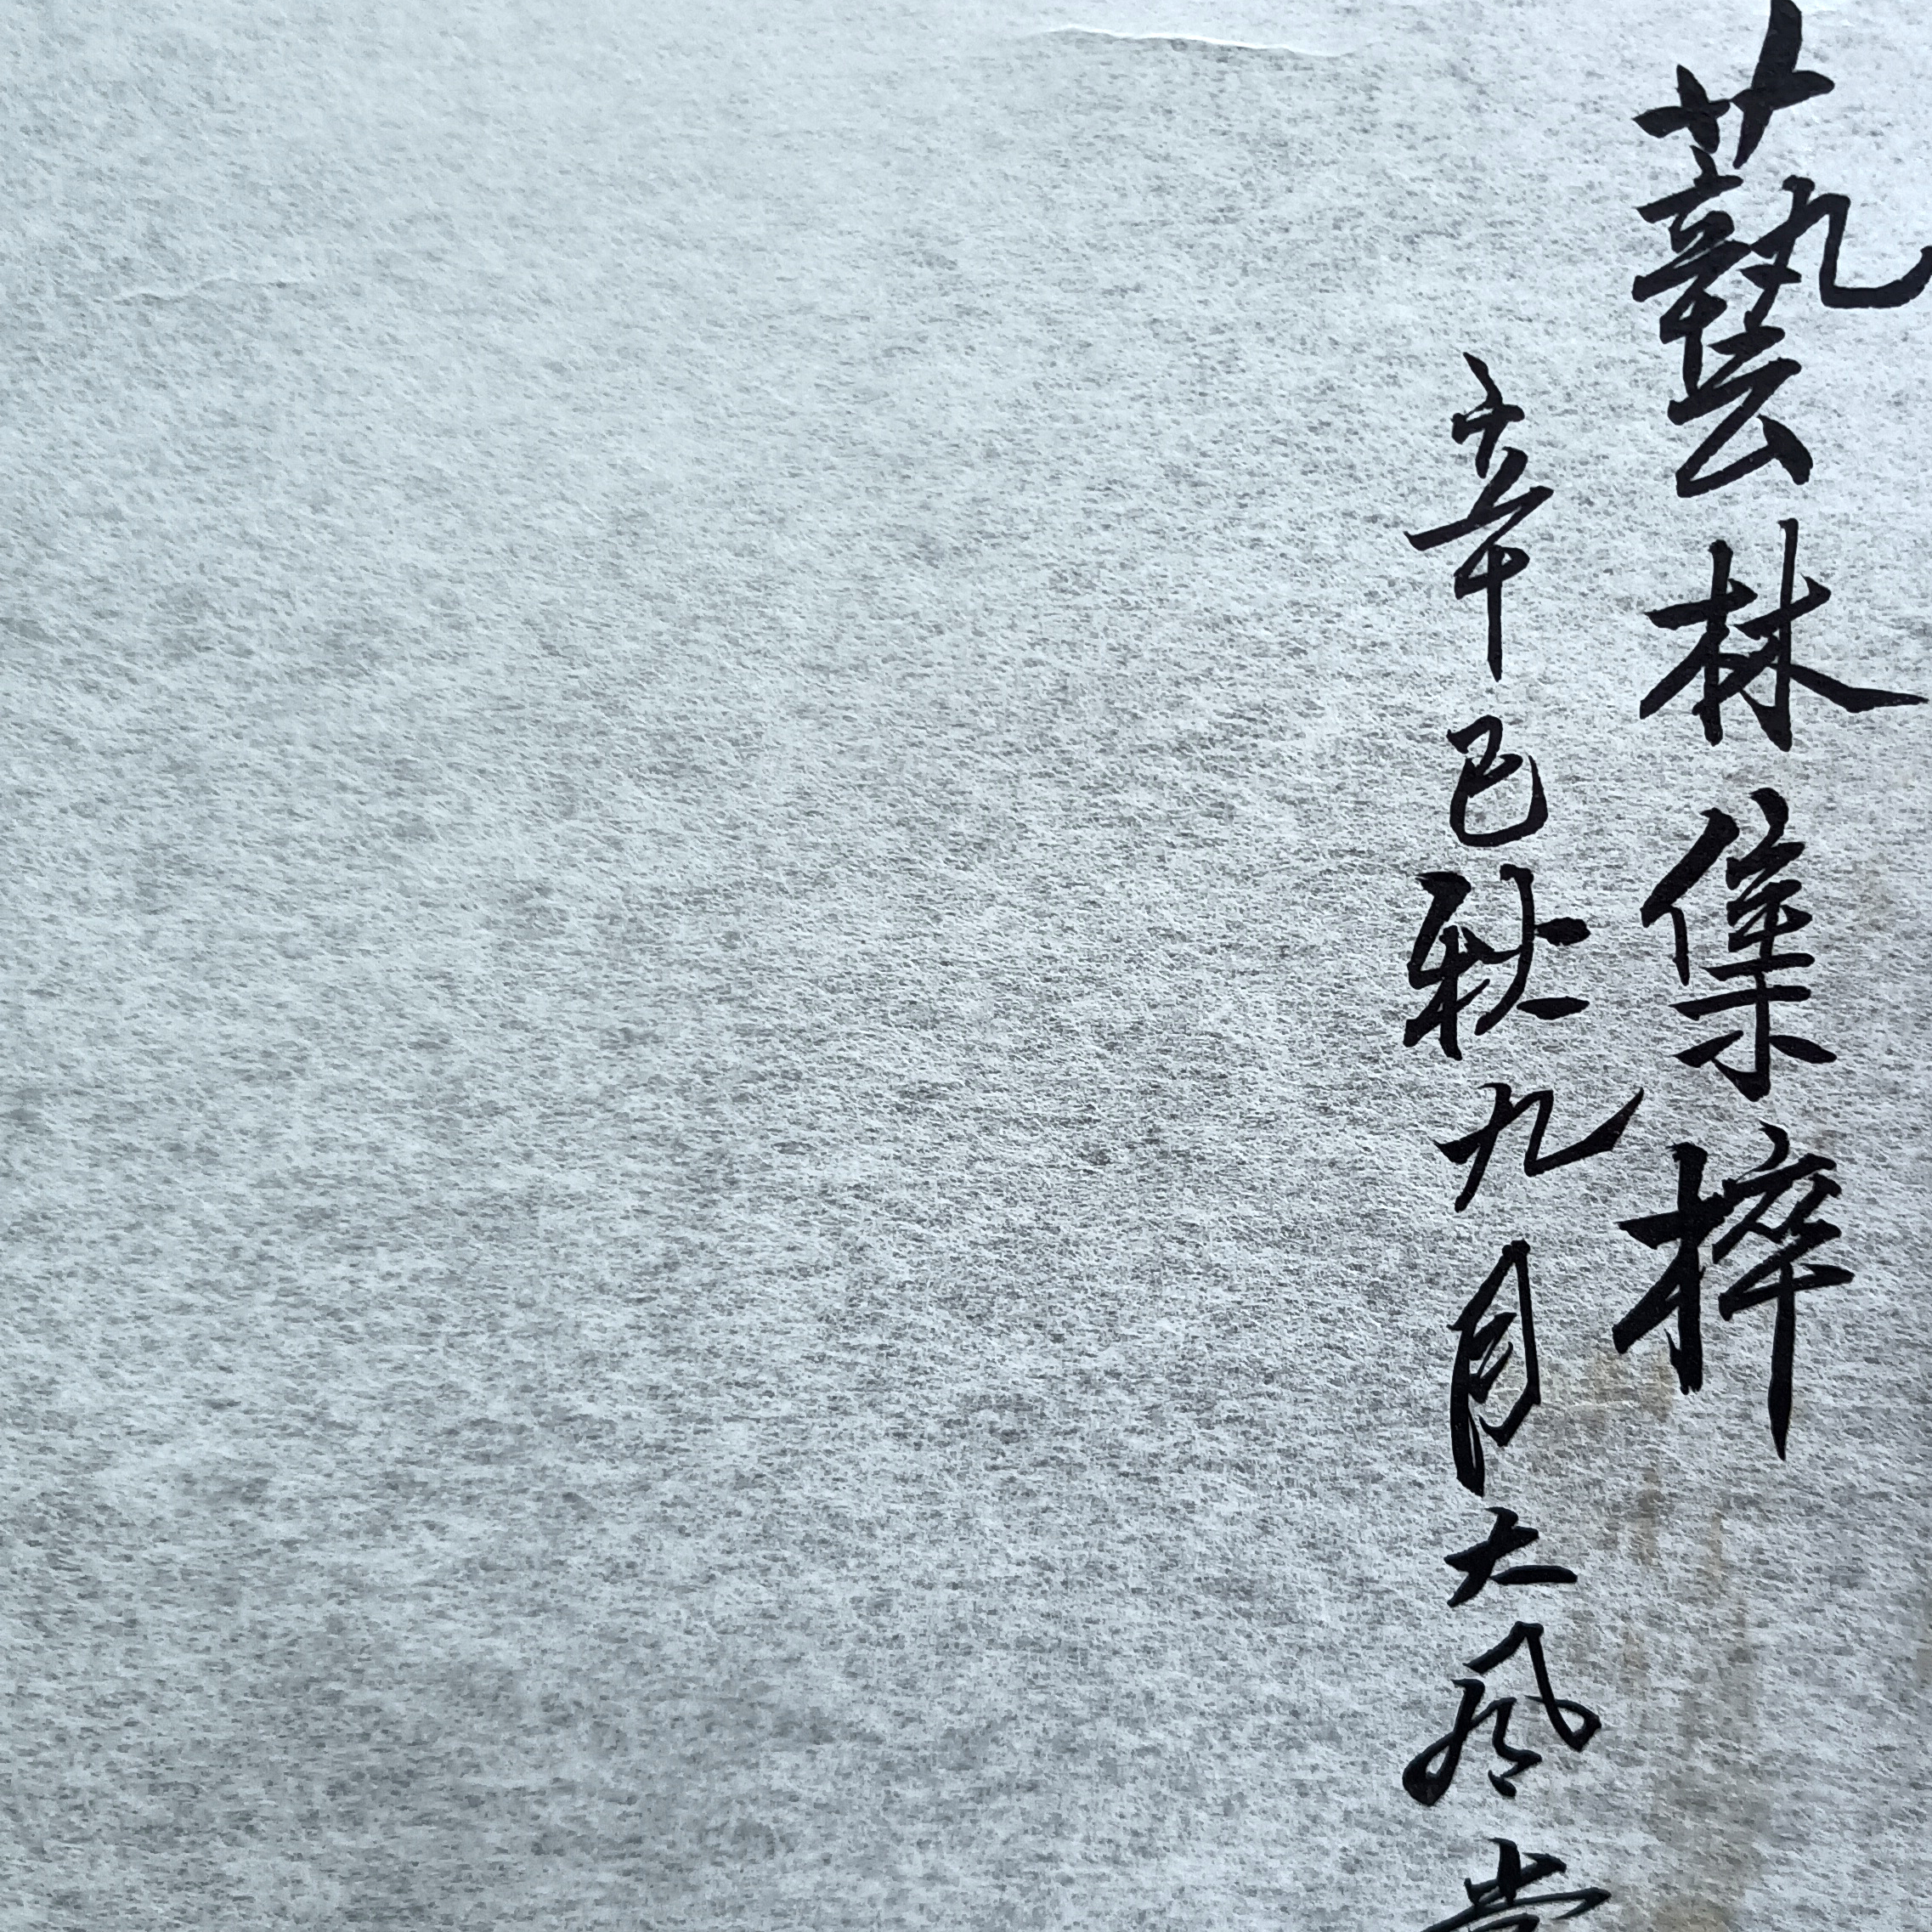 藝林集粹
辛巳秋九月大风堂